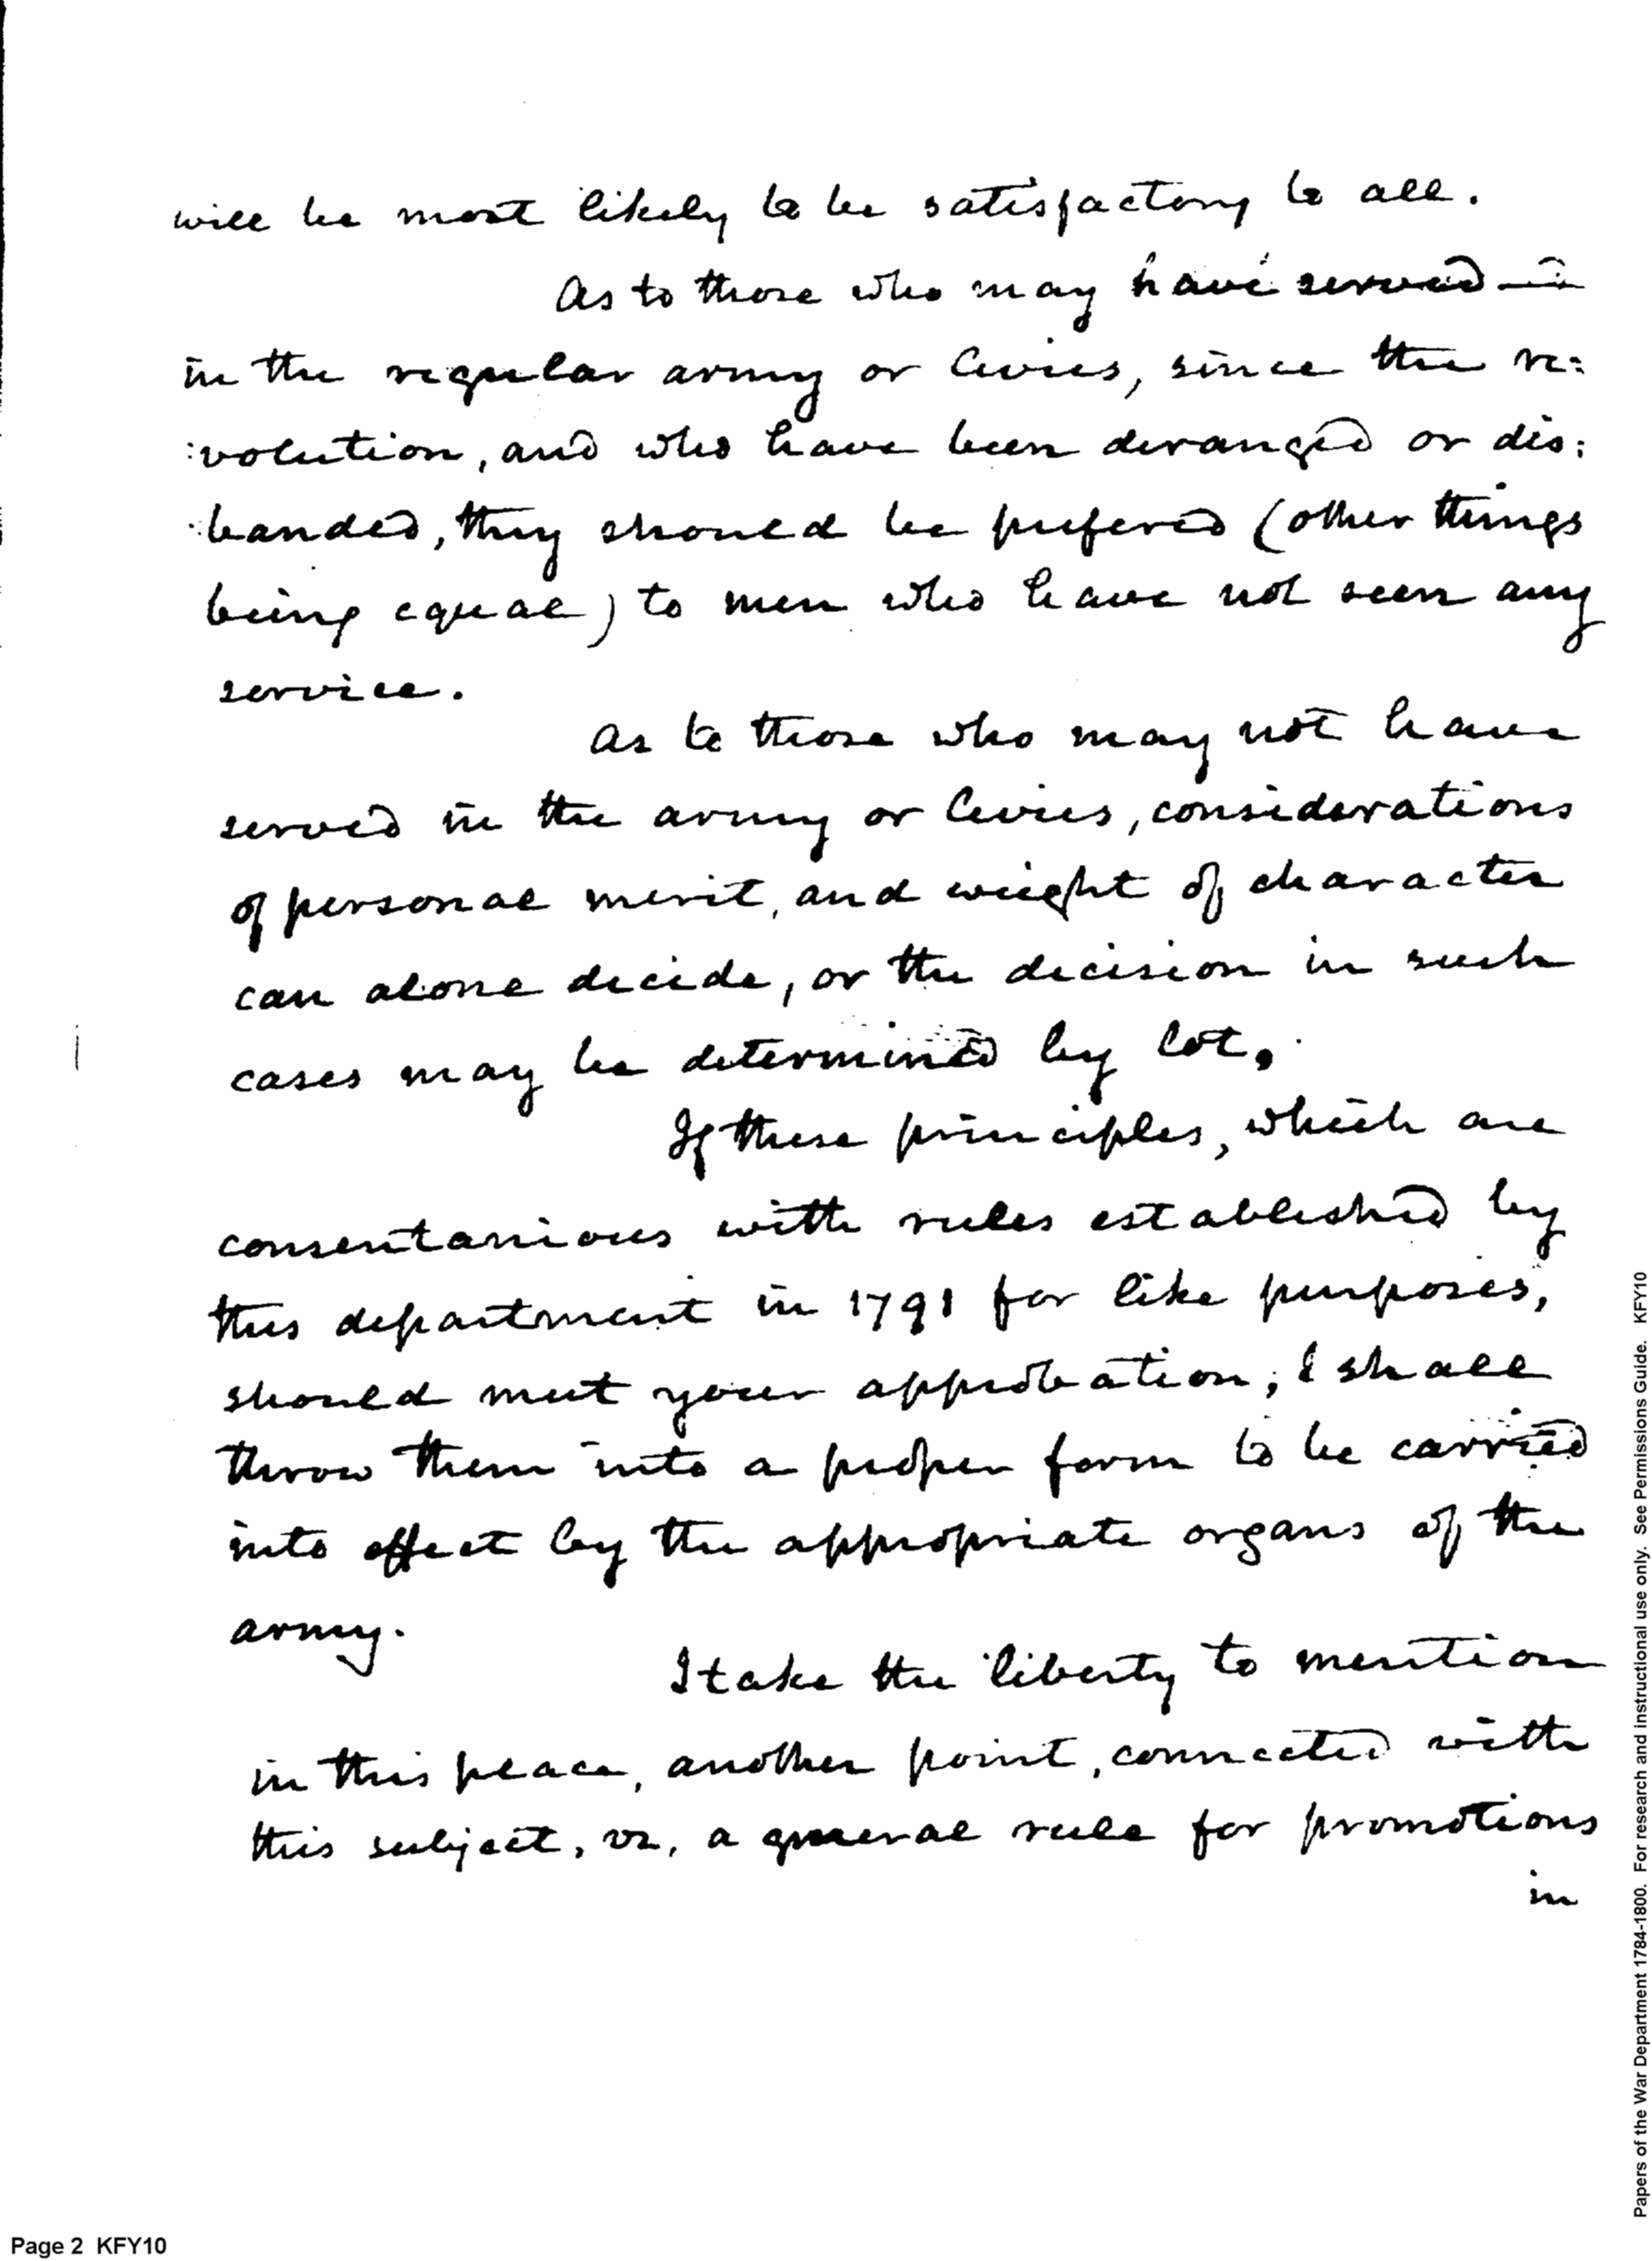 will be most likely to be satisfactory to all.
As to those who may have served in
in the regular army or levies, since the re:
:volution, and who have been deranged or dis:
:banded, they should be prefered (other things
being equal) to men who have not seen any
service.
As to those who may not have
served in the army or levies, considerations
of personal merit, and weight of character
can alone decide, or the decision in such
cases may be determined by lot.
If these principles, which are
consentanious with rules established by
this department in 1791 for like purposes,
should meet your approbation, I shall
throw them into a proper form to be carried
into effect by the appropriate organs of the
army.
I take the liberty to mention
in this place, another point, connected with
this subject, vz, a general rule for promotions
in
Page 2 KFY10
Papers of the War Department 1784-1800. For research and instructional use only. See Permissions Guide. KFY10